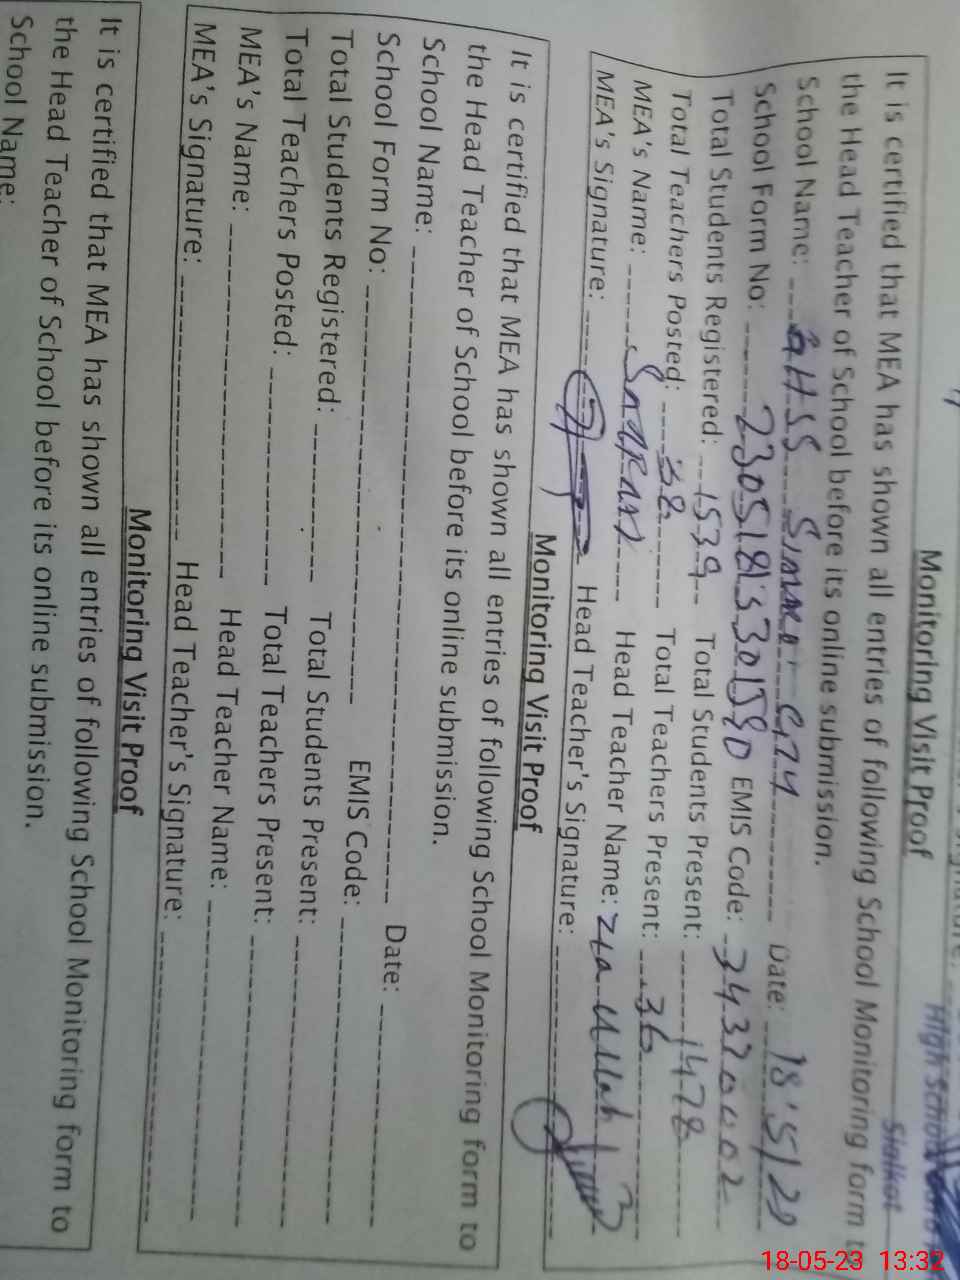 High School
Sialkot
Monitoring Visit Proof
It is certified that MEA has shown all entries of following School Monitoring form to
the Head Teacher of School before its online submission.
School Name: GHSS City Date: 18/5/23
School Form No: EMIS Code: 34370002
Total Students Registered: 1539 Total Students Present: 1478
Total Teachers Posted: 38 Total Teachers Present: 36
MEA's Name: Head Teacher Name: Zia Ullah
MEA's Signature: Head Teacher's Signature:
Monitoring Visit Proof
It is certified that MEA has shown all entries of following School Monitoring form to
the Head Teacher of School before its online submission.
School Name: Date:
School Form No: EMIS Code:
Total Students Registered: Total Students Present:
Total Teachers Posted: Total Teachers Present:
MEA's Name: Head Teacher Name:
MEA's Signature: Head Teacher's Signature:
Monitoring Visit Proof
It is certified that MEA has shown all entries of following School Monitoring form to
the Head Teacher of School before its online submission.
School Name:
18-05-23 13:32